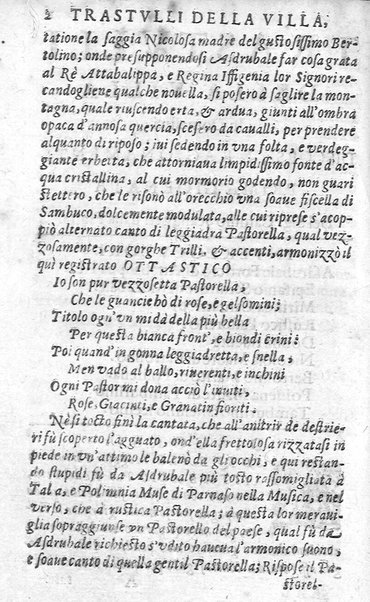 2 TRASTVLLI DELLA VILLA,
tatione la saggia Nicolosa madre del gustosissimo Ber-
tolino; onde presupponendosi Asdrubale far cosa grata
al Rè Attabalippa, e Regina Iffigenia lor Signori re-
candogliene qualche nouella, si posero à saglire la mon-
tagna, quale riuscendo erta, & ardua, giunti all'ombra
opaca d'annosa quercia, scesero da caualli, per prendere
alquanto di riposo; iui sedendo in vna folta, e verdeg-
giante erbetta, che attorniaua limpidissimo fonte d'ac-
qua cristallina, al cui mormorio godendo, non guari
stettero, che le risonò all'orecchio vna soaue fiscella di
Sambuco, dolcemente modulata, alle cui riprese s'acop-
piò alternato canto di leggiadra Pastorella, qual vez-
zosamente, con gorghe Trilli, & accenti, armonizzò il
quì registrato OTTASTICO
Io son pur vezzosetta Pastorella,
Che le guancie hò di rose, e gelsomini;
Titolo ogn'vn mi dà della più bella
Per questa bianca front', e biondi crini:
Poi quand'in gonna leggiadretta, e snella,
Men vado al ballo, riuerenti, e inchini
Ogni Pastor mi dona acciò l'inuiti,
Rose, Giacinti, e Granatin fioriti.
Nè sì tosto finì la cantata, che all'anitrir de destrie-
ri fù scoperto l'agguato, ond'ella frettolosa rizzatasi in
piede in vn'attimo le balenò da gl'occhi, e qui restan-
do stupidi fù da Asdrubale più tosto rassomigliata à
Talia, e Polinnia Muse di Parnaso nella Musica, e nel
verso, che à rustica Pastorella; à questa lor meraui-
glia sopraggiunse vn Pastorello del paese, qual fù da
Asdrubale richiesto s'vdito haueua l'armonico suono,
e soaue canto di quella gentil Pastorella; Rispose il Pa-
storel-